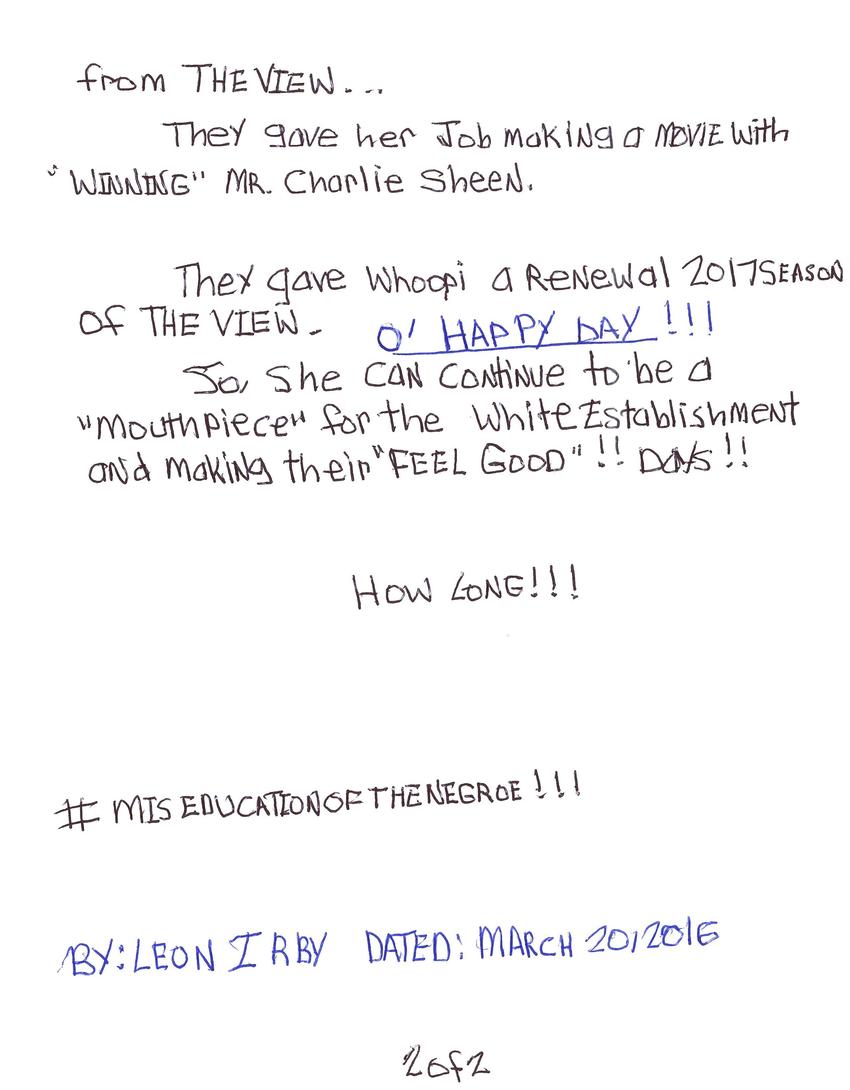 from THE VIEW...
They gave her Job making a MOVIE With
"WINNING" MR. Charlie Sheen.
They gave Whoopi a Renewal 2017 SEASON
Of THE VIEW. O' HAPPY DAY!!!
So, She CAN CONtiNUE to be a
"Mouthpiece" for the White EstablishMENT
and making their "FEEL GOOD"!! DAYS!!
HOW LONG!!!
# MIS EDUCATIONOFTHENEGROE!!!
BY: LEON IRBY DATED: MARCH 20, 2016
2 of 2